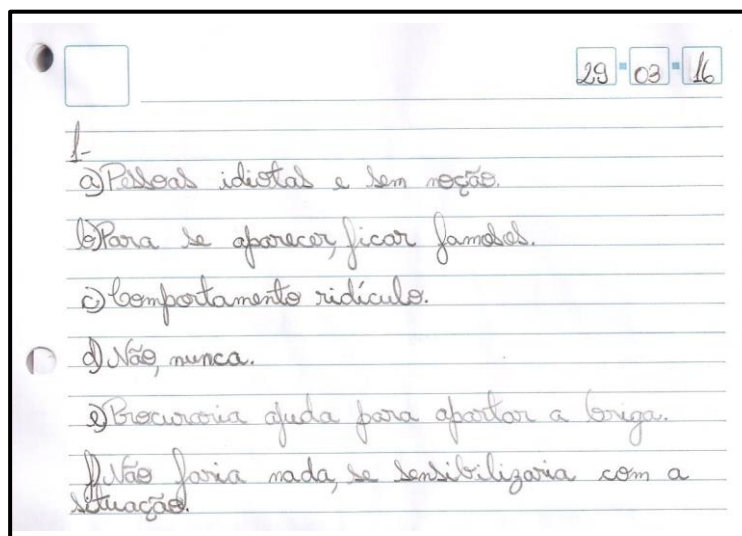 29 03 16
1-
a) Pessoas idiotas e sem noção.
b) Para se aparecer, ficar famosos.
c) Comportamento ridículo.
d) Não, nunca.
e) Procuraria ajuda para apartar a briga.
f) Não faria nada, se sensibilizaria com a
situação.